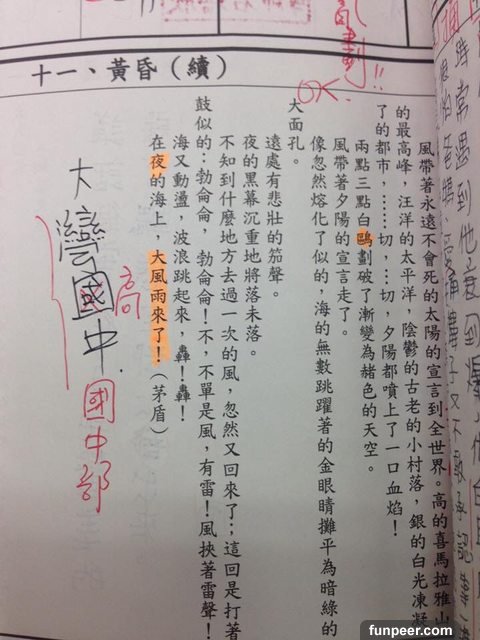 十一、黃昏（續）
時常遇到他
OK.
風帶著永遠不會死的太陽的宣言到全世界。高的喜馬拉雅山
的最高峰，汪洋的太平洋，陰鬱的古老的小村落，銀的白光凍凝
了的都市，……切，…切，夕陽都噴上了一口血焰！
兩點三點白鷗劃破了漸變為赭色的天空。
風帶著夕陽的宣言走了。
像忽然熔化了似的，海的無數跳躍著的金眼睛攤平為暗綠的
大面孔。
遠處有悲壯的笳聲。
夜的黑幕沉重地將落未落。
不知到什麼地方去過一次的風，忽然又回來了；這回是打著
鼓似的：勃侖侖，勃侖侖！不，不單是風，有雷！風挾著雷聲！
海又動盪，波浪跳起來，轟！轟！
在夜的海上，大風雨來了！（茅盾）
高
大灣國中.
國中部
funpeer.com